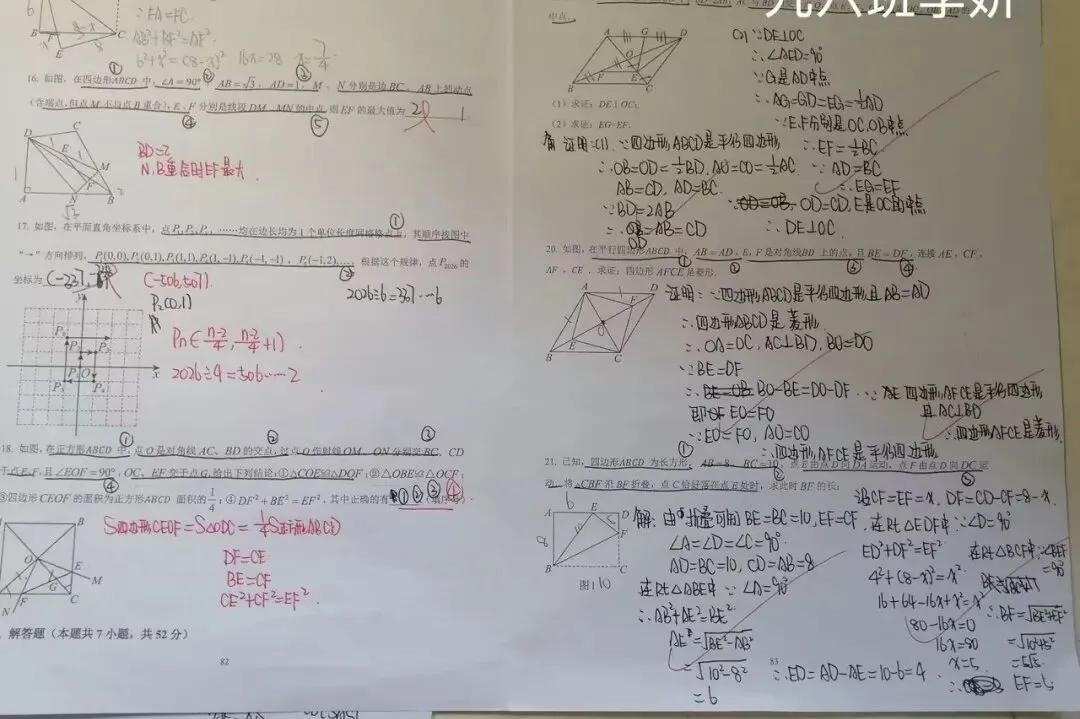 ∴FA=FC
AB²+BF²=AF²
6²+x²=(8-x)² 16x=28 x=7/4
16. 如图，在四边形ABCD 中，∠A=90°，AB=√3，AD=1，M、N 分别是边BC、AB上的动点
（含端点，但点 M 不与点 B 重合），E、F 分别是线段 DM、MN 的中点，则 EF 的最大值为 1
BD=2
N,B重合时EF最大.
17. 如图，在平面直角坐标系中，点P₁,P₂,P₃，……均在边长均为 1 个单位长度网格格点上，其顺序按图中
“→”方向排列，P₁(0,0),P₂(0,1),P₃(1,1),P₄(1,-1),P₅(-1,-1)，P₆(-1,2)……根据这个规律，点 P₂₀₂₆ 的
坐标为 (-506,507).
2026÷6=337…6
P₂(0,1)
Pn(-n-2/4, n-2/4+1)
2026÷4=506……2
18. 如图，在正方形ABCD 中，点 O 是对角线 AC、BD 的交点，过点 O 作射线 OM、ON 分别交 BC、CD
于点 E、F，且∠EOF=90°，OC、EF 交于点 G，给出下列结论：①△COE≌△DOF；②△OBE≌△OCF；
③四边形 CEOF 的面积为正方形ABCD 面积的1/4；④DF²+BE²=EF²，其中正确的有 ①②③④
S四边形CEOF=S△ODC=1/4S正方形ABCD
DF=CE
BE=CF
CE²+CF²=EF².
解答题（本题共 7 小题，共 52 分）
82
中点.
（1）求证：DE⊥OC；
（2）求证：EG=EF.
证明:(1)∵四边形ABCD是平行四边形
∴OB=OD=1/2BD,AO=CO=1/2AC
AB=CD,AD=BC.
∵BD=2AB
∴OD=AB=CD
OD=CD,E是OC的中点
∴DE⊥OC.
(2)∵DE⊥OC
∴∠AED=90°
∵G是AD中点
∴AG=GD=EG=1/2AD
∵E,F分别是OC,OB中点
∴EF=1/2BC
∵AD=BC
∴EG=EF
20. 如图，在平行四边形ABCD 中，AB=AD，E，F 是对角线BD 上的点，且BE=DF，连接 AE、CF、
AF、CE．求证：四边形 AFCE是菱形.
证明：∵四边形ABCD是平行四边形且AB=AD
∴四边形ABCD是菱形
∴OA=OC,AC⊥BD,BO=DO
∵BE=DF
∴BO-BE=DO-DF
即EO=FO
∵EO=FO,AO=CO
∴四边形AFCE是平行四边形
∵四边形AFCE是平行四边形
且AC⊥BD
∴四边形AFCE是菱形.
21. 已知，四边形ABCD 为长方形，AB=8，BC=10，点E由点D向DA运动，点F由点D向DC运
动，将△CBF 沿 BF折叠，点 C 恰好落在点 E 处时，求此时 BF 的长；
图1
解：由折叠可知BE=BC=10,EF=CF
∠A=∠D=∠C=90°
AD=BC=10,CD=AB=8
在Rt△ABE中 ∵∠A=90°
∴AB²+AE²=BE²
AE=√BE²-AB²
=√10²-8²
=6
∴ED=AD-AE=10-6=4
设CF=EF=x,DF=CD-CF=8-x.
在Rt△EDF中∵∠D=90°
ED²+DF²=EF²
4²+(8-x)²=x²
16+64-16x+x²=x²
80-16x=0
16x=80
x=5
EF=5
在Rt△BEF中,∠BEF
=90°
∴BF=√BE²+EF²
=√10²+5²
=5√5
83